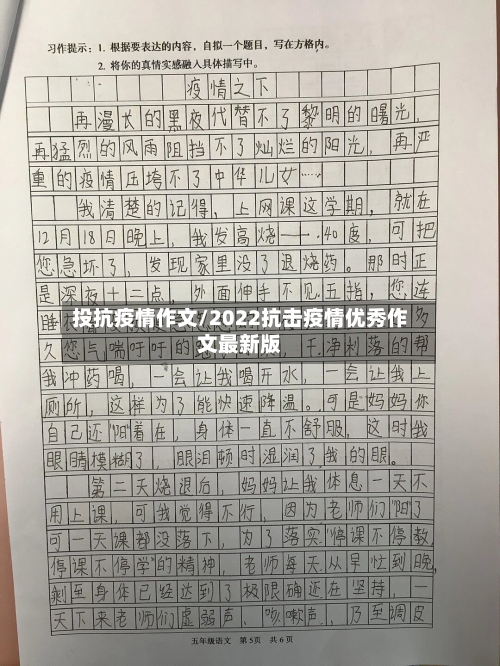 习作提示：1. 根据要表达的内容，自拟一个题目，写在方格内。
2. 将你的真情实感融入具体描写中。
疫情之下
再漫长的黑夜代替不了黎明的曙光，
再猛烈的风雨阻挡不了灿烂的阳光，再严
重的疫情压垮不了中华儿女……
我清楚的记得，上网课这学期，就在
12月18日晚上，我发高烧——40度，可把
您急坏了，发现家里没了退烧药。那时正
是深夜十二点，外面伸手不见五指，您连
投抗疫情作文/2022抗击疫情优秀作
文最新版
久您气喘吁吁的 干净利落的帮
我冲药喝，一会让我喝开水，一会让我上
厕所，这样为了能快速降温。可是妈妈你
自己还"阳"着在，身体一直不舒服，这时我
眼睛模糊了，眼泪顿时湿润了我的眼。
第二天烧退后，妈妈让我休息一天不
用上课，可我觉得不行，因为老师们"阳"了
可一天课都没落下，为了落实"停课不停教
停课不停学"的精神，老师每天从早忙到晚，
剩至身体已经达到了极限确还在坚持，一
天下来老师们虚弱声、咳嗽声，乃至调皮
五年级语文 第5页 共6页